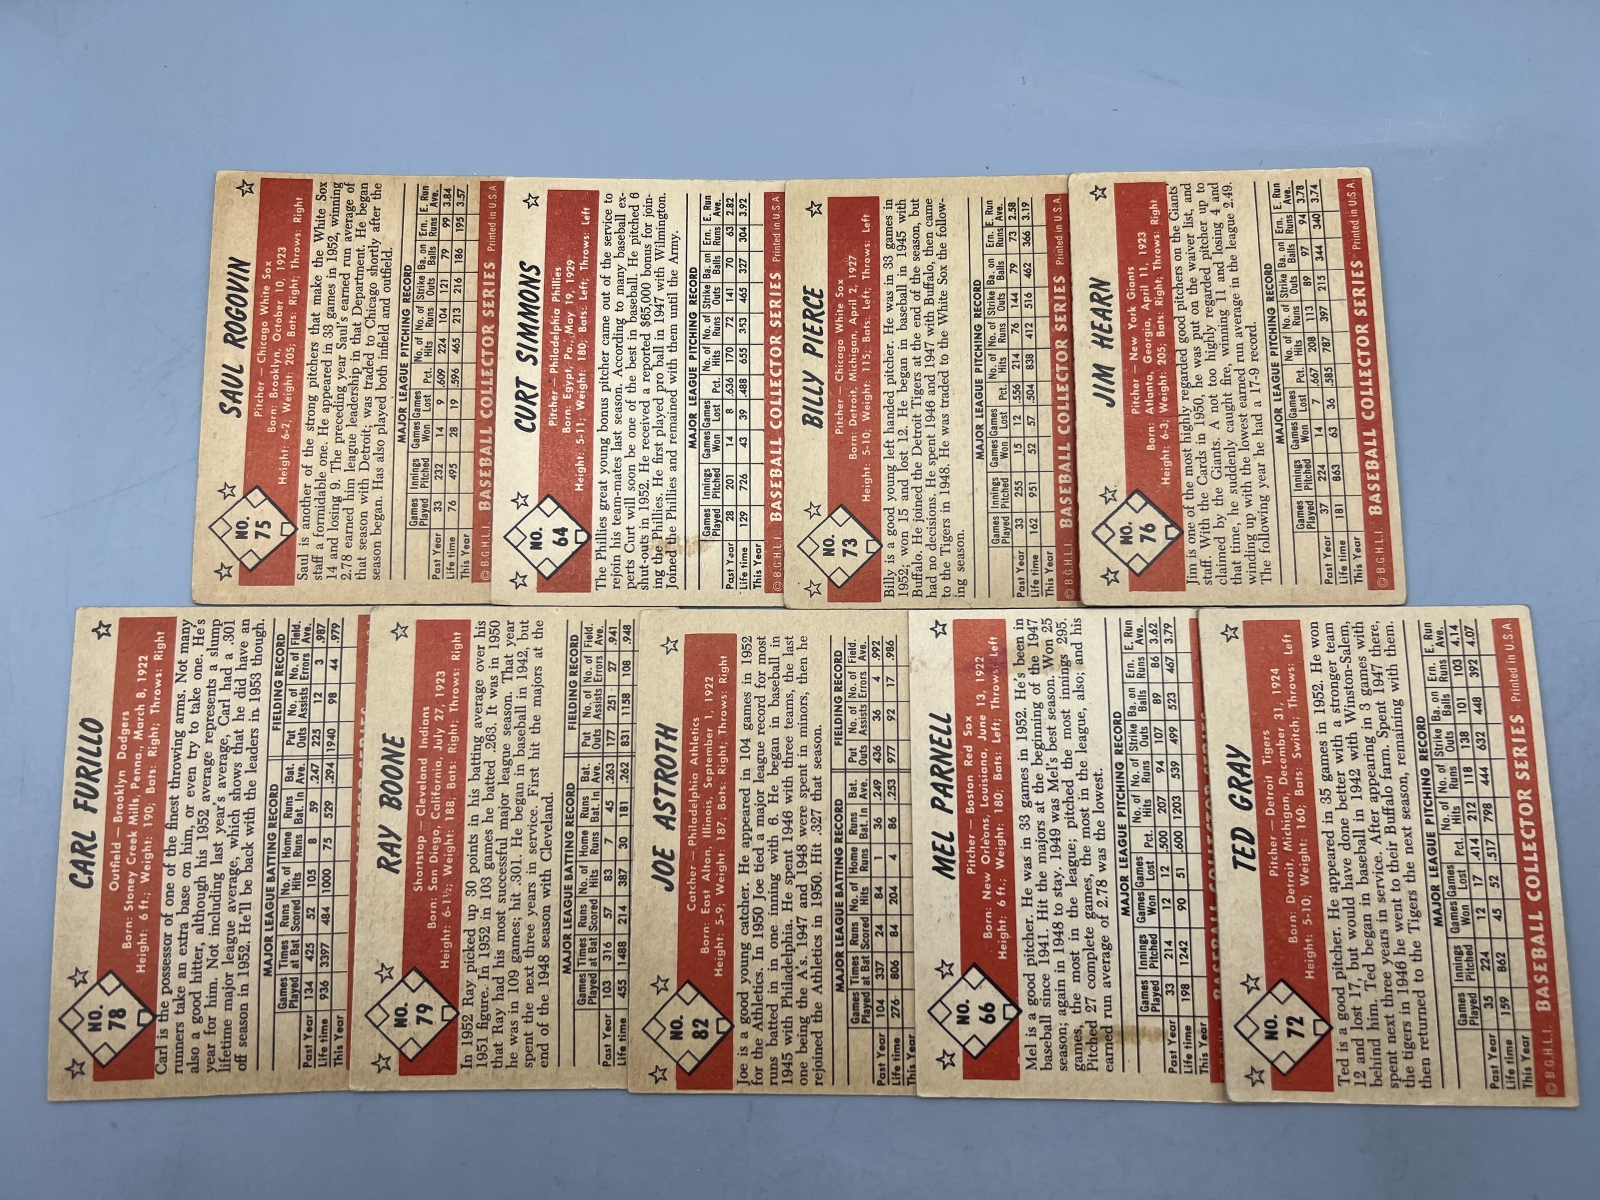 SAUL ROGOVIN
NO.
75
Pitcher — Chicago White Sox
Born: Brooklyn, October 10, 1923
Height: 6-2; Weight: 205; Bats: Right; Throws: Right
Saul is another of the strong pitchers that make the White Sox
staff a formidable one. He appeared in 33 games in 1952, winning
14 and losing 9. The preceding year Saul's earned run average of
2.78 earned him league leadership in that Department. He began
that season with Detroit; was traded to Chicago shortly after the
season began. Has also played both infield and outfield.
MAJOR LEAGUE PITCHING RECORD
Games Played Innings Pitched Games Won Games Lost Pct. No. of Hits No. of Runs Strike Outs Ba. on Balls Ern. Runs E. Run Ave.
Past Year 33 232 14 9 .609 224 104 121 79 99 3.84
Life time 76 495 28 19 .596 465 213 216 186 195 3.57
This Year
© B.G.H.L.I. BASEBALL COLLECTOR SERIES Printed in U.S.A.
CURT SIMMONS
NO.
64
Pitcher — Philadelphia Phillies
Born: Egypt, Pa., May 19, 1929
Height: 5-11; Weight: 180; Bats: Left; Throws: Left
The Phillies great young bonus pitcher came out of the service to
rejoin his team-mates last season. According to many baseball ex-
perts Curt will soon be one of the best in baseball. He pitched 6
shut-outs in 1952. He received a reported $65,000 bonus for join-
ing the Phillies. He first played pro ball in 1947 with Wilmington.
Joined the Phillies and remained with them until the Army.
MAJOR LEAGUE PITCHING RECORD
Games Played Innings Pitched Games Won Games Lost Pct. No. of Hits No. of Runs Strike Outs Ba. on Balls Ern. Runs E. Run Ave.
Past Year 28 201 14 8 .636 170 72 141 70 63 2.82
Life time 129 726 43 39 .488 655 353 465 327 304 3.92
This Year
© B.G.H.L.I. BASEBALL COLLECTOR SERIES Printed in U.S.A.
BILLY PIERCE
NO.
73
Pitcher — Chicago White Sox
Born: Detroit, Michigan, April 2, 1927
Height: 5-10; Weight: 115; Bats: Left; Throws: Left
Billy is a good young left handed pitcher. He was in 33 games in
1952; won 15 and lost 12. He began in baseball in 1945 with
Buffalo. He joined the Detroit Tigers at the end of the season, but
had no decisions. He spent 1946 and 1947 with Buffalo, then came
to the Tigers in 1948. He was traded to the White Sox the follow-
ing season.
MAJOR LEAGUE PITCHING RECORD
Games Played Innings Pitched Games Won Games Lost Pct. No. of Hits No. of Runs Strike Outs Ba. on Balls Ern. Runs E. Run Ave.
Past Year 33 255 15 12 .556 214 76 144 79 73 2.58
Life time 162 951 52 57 .504 838 412 516 462 366 3.19
This Year
© B.G.H.L.I. BASEBALL COLLECTOR SERIES Printed in U.S.A.
JIM HEARN
NO.
76
Pitcher — New York Giants
Born: Atlanta, Georgia, April 11, 1923
Height: 6-3; Weight: 205; Bats: Right; Throws: Right
Jim is one of the most highly regarded good pitchers on the Giants
staff. With the Cards in 1950, he was put on the waiver list, and
claimed by the Giants. A not too highly regarded pitcher up to
that time, he suddenly caught fire, winning 11 and losing 4 and
winding up with the lowest earned run average in the league 2.49.
The following year he had a 17-9 record.
MAJOR LEAGUE PITCHING RECORD
Games Played Innings Pitched Games Won Games Lost Pct. No. of Hits No. of Runs Strike Outs Ba. on Balls Ern. Runs E. Run Ave.
Past Year 37 224 14 7 .667 208 113 89 97 94 3.78
Life time 181 863 63 36 .585 787 397 215 344 340 3.74
This Year
© B.G.H.L.I. BASEBALL COLLECTOR SERIES Printed in U.S.A.
CARL FURILLO
NO.
78
Outfield — Brooklyn Dodgers
Born: Stoney Creek Mills, Penna., March 8, 1922
Height: 6 ft.; Weight: 190; Bats: Right; Throws: Right
Carl is the possessor of one of the finest throwing arms. Not many
runners take an extra base on him, or even try to take one. He's
also a good hitter, although his 1952 average represents a slump
year for him. Not including last year's average, Carl had a .301
lifetime major league average, which shows that he did have an
off season in 1952. He'll be back with the leaders in 1953 though.
MAJOR LEAGUE BATTING RECORD FIELDING RECORD
Games Played Times at Bat Runs Scored Hits Home Runs Runs Bat. In Bat. Ave. Put Outs No. of Assists No. of Errors Field. Ave.
Past Year 134 425 52 105 8 59 .247 225 12 3 .987
Life time 936 3397 484 1000 75 529 .294 1940 98 44 .979
This Year
RAY BOONE
NO.
79
Shortstop — Cleveland Indians
Born: San Diego, California, July 27, 1923
Height: 6-1½; Weight: 188; Bats: Right; Throws: Right
In 1952 Ray picked up 30 points in his batting average over his
1951 figure. In 1952 in 103 games he batted .263. It was in 1950
that Ray had his most successful major league season. That year
he was in 109 games; hit .301. He began in baseball in 1942, but
spent the next three years in service. First hit the majors at the
end of the 1948 season with Cleveland.
MAJOR LEAGUE BATTING RECORD FIELDING RECORD
Games Played Times at Bat Runs Scored Hits Home Runs Runs Bat. In Bat. Ave. Put Outs No. of Assists No. of Errors Field. Ave.
Past Year 103 316 57 83 7 45 .263 177 251 27 .941
Life time 455 1488 214 387 30 181 .262 831 1158 108 .948
JOE ASTROTH
NO.
82
Catcher — Philadelphia Athletics
Born: East Alton, Illinois, September 1, 1922
Height: 5-9; Weight: 187; Bats: Right; Throws: Right
Joe is a good young catcher. He appeared in 104 games in 1952
for the Athletics. In 1950 Joe tied a major league record for most
runs batted in in one inning with 6. He began in baseball in
1945 with Philadelphia. He spent 1946 with three teams, the last
one being the A's. 1947 and 1948 were spent in minors, then he
rejoined the Athletics in 1950. Hit .327 that season.
MAJOR LEAGUE BATTING RECORD FIELDING RECORD
Games Played Times at Bat Runs Scored Hits Home Runs Runs Bat. In Bat. Ave. Put Outs No. of Assists No. of Errors Field. Ave.
Past Year 104 337 24 84 1 36 .249 436 36 4 .992
Life time 276 806 84 204 4 86 .253 977 92 17 .986
This Year
MEL PARNELL
NO.
66
Pitcher — Boston Red Sox
Born: New Orleans, Louisiana, June 13, 1922
Height: 6 ft.; Weight: 180; Bats: Left; Throws: Left
Mel is a good pitcher. He was in 33 games in 1952. He's been in
baseball since 1941. Hit the majors at the beginning of the 1947
season; again in 1948 to stay. 1949 was Mel's best season. Won 25
games, the most in the league; pitched the most innings 295.
Pitched 27 complete games, the most in the league, also; and his
earned run average of 2.78 was the lowest.
MAJOR LEAGUE PITCHING RECORD
Games Played Innings Pitched Games Won Games Lost Pct. No. of Hits No. of Runs Strike Outs Ba. on Balls Ern. Runs E. Run Ave.
Past Year 33 214 12 12 .500 207 94 107 89 86 3.62
Life time 198 1242 90 51 .600 1203 539 499 523 467 3.79
This Year
TED GRAY
NO.
72
Pitcher — Detroit Tigers
Born: Detroit, Michigan, December 31, 1924
Height: 5-10; Weight: 160; Bats: Switch; Throws: Left
Ted is a good pitcher. He appeared in 35 games in 1952. He won
12 and lost 17, but would have done better with a stronger team
behind him. Ted began in baseball in 1942 with Winston-Salem,
spent next three years in service. After appearing in 3 1947 there,
the tigers in 1946 he went to their Buffalo farm. Spent 1947 there,
then returned to the Tigers the next season, remaining with them.
MAJOR LEAGUE PITCHING RECORD
Games Played Innings Pitched Games Won Games Lost Pct. No. of Hits No. of Runs Strike Outs Ba. on Balls Ern. Runs E. Run Ave.
Past Year 35 224 12 17 .414 212 118 138 101 103 4.14
Life time 159 862 45 52 .517 798 444 632 448 392 4.07
This Year
© B.G.H.L.I. BASEBALL COLLECTOR SERIES Printed in U.S.A.